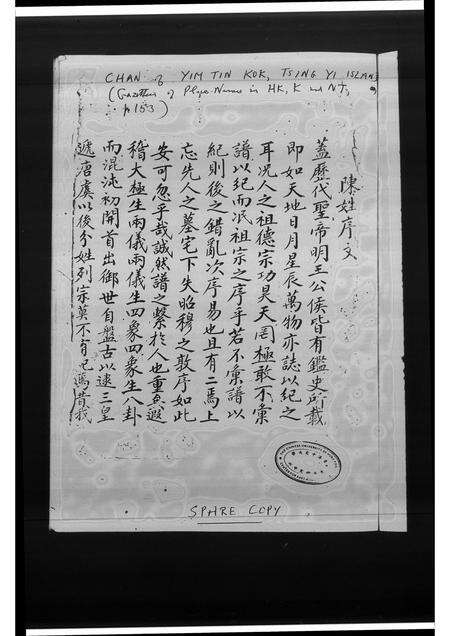 CHAN of YIM TIN KOK, TSING YI ISLAND
(Gazetteer of Place Names in HK, K and NT,
p 153)
陳姓序文
蓋歷代聖帝明王公侯皆有鑑史所載
即如天地日月星辰萬物亦誌以紀之
耳況人之祖德宗功昊天罔極敢不彙
譜以紀而泯祖宗之序乎若不彙譜以
紀則後之錯亂次序易也且有二焉上
忘先人之墓宅下失昭穆之敦序如此
安可忽乎哉誠然譜之繫於人也重矣遐
稽大極生兩儀兩儀生四象四象生八卦
而混沌初開首出御世自盤古以逮三皇
遞唐虞以後分姓列宗莫不有
SPARE COPY